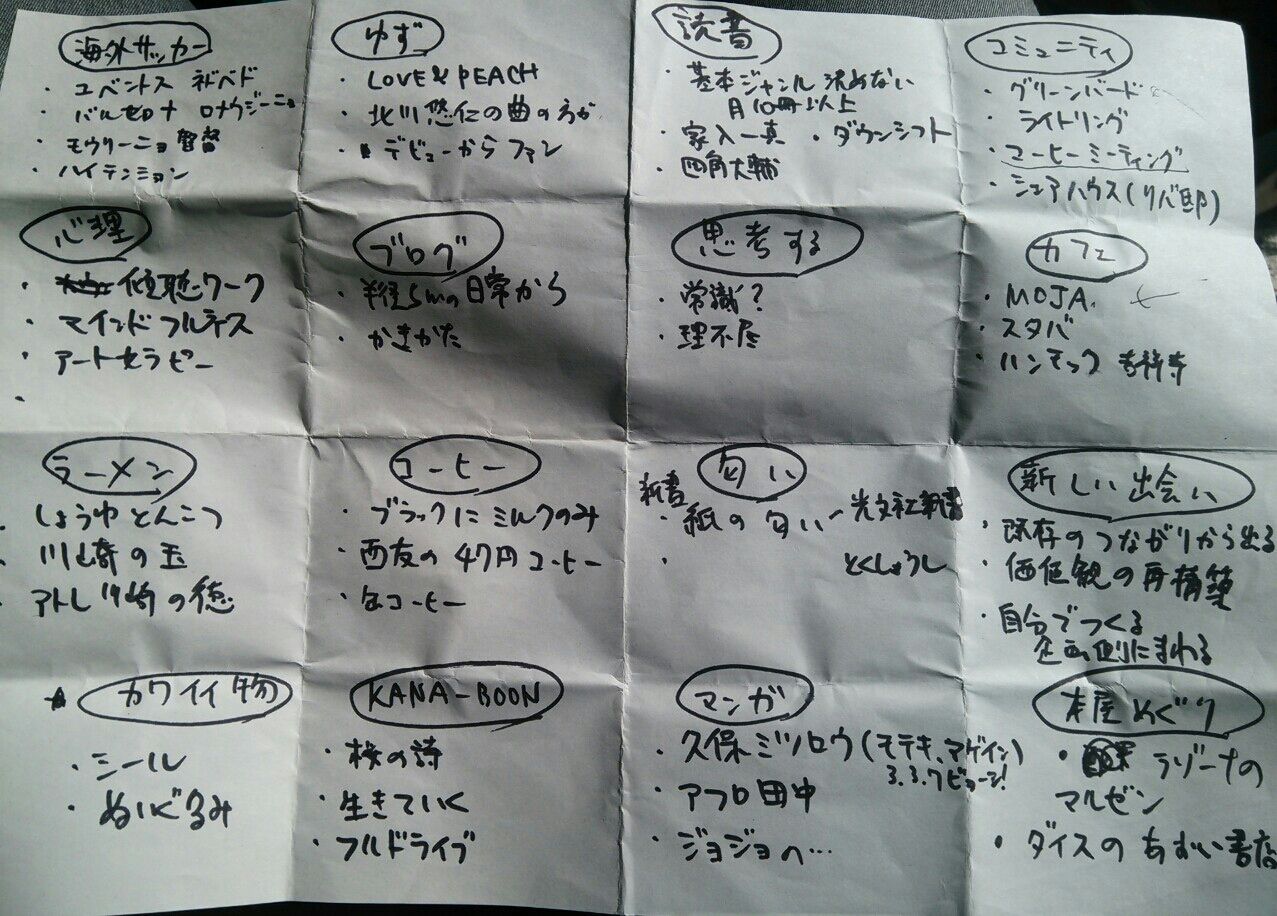 海外サッカー
・ユベントス ネドベド
・バルセロナ ロナウジーニョ
・モウリーニョ監督
・ハイテンション
ゆず
・LOVE & PEACH
・北川悠仁の曲の方が
・デビューからファン
読書
・基本ジャンル決めない
月10冊以上
・家入一真 ・ダウンシフト
・四角大輔
コミュニティ
・グリーンバード
・ライトリング
・コーヒーミーティング
・シェアハウス(リバ邸)
心理
・傾聴ワーク
・マインドフルネス
・アートセラピー
・
ブログ
・半径5mの日常から
・かきかた
思考する
・常識?
・理不尽
カフェ
・MOJA
・スタバ
・ハンモック 吉祥寺
ラーメン
・しょうゆとんこつ
・川崎の玉
・アトレ川崎の徳
コーヒー
・ブラックにミルクのみ
・西友の47円コーヒー
・缶コーヒー
匂い
新書
・紙の匂い 光文社新書
・とくしょうし
新しい出会い
・既存のつながりから出る
・価値観の再構築
・自分でつくる
企画側にまわる
カワイイ物
・シール
・ぬいぐるみ
KANA-BOON
・桜の詩
・生きていく
・フルドライブ
マンガ
・久保ミツロウ(モテキ、アゲイン)
3.3.7ビョーシ!
・アフロ田中
・ジョジョの…
本屋めぐり
・ラゾーナの
マルゼン
・ダイスのあおい書店